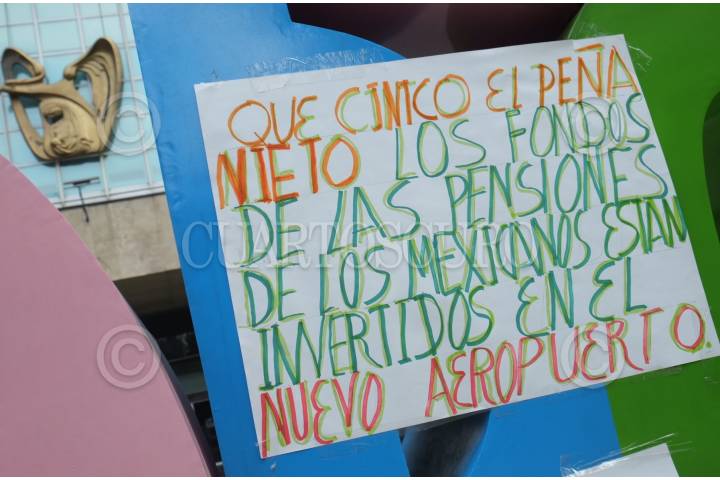 QUE CÍNICO EL PEÑA
NIETO LOS FONDOS
DE LAS PENSIONES
DE LOS MEXICANOS ESTÁN
INVERTIDOS EN EL
NUEVO AEROPUERTO.
CUARTOSCURO